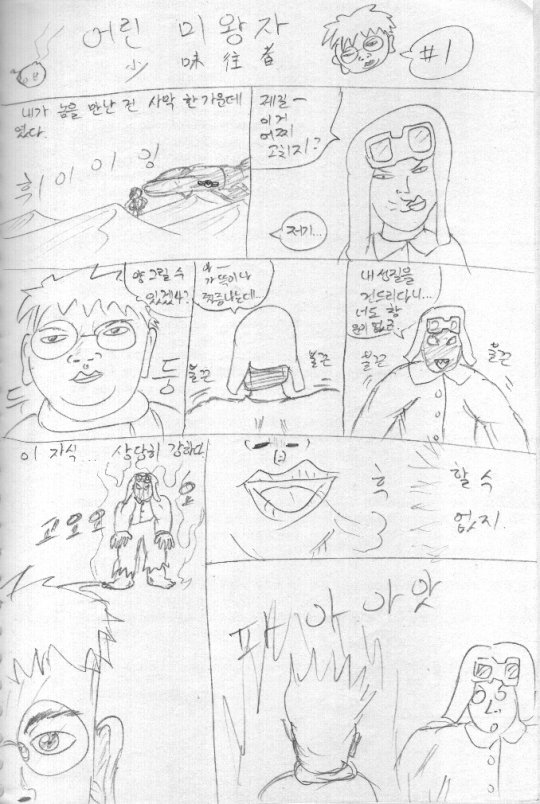 어린 미왕자
小 味 往 者
#1
내가 놈을 만난 건 사막 한가운데
였다.
휘이이잉
제길-
이거
어찌
고치지?
저기...
양그릴 수
있겠습?
두둥
아-
가뜩이나
짜증나는데...
불끈
불끈
내 성질을
건드리다니...
너도 참
불끈
불끈
이 자식... 상당히 강하다
고오오오
흑
할 수
없지
파아아앗